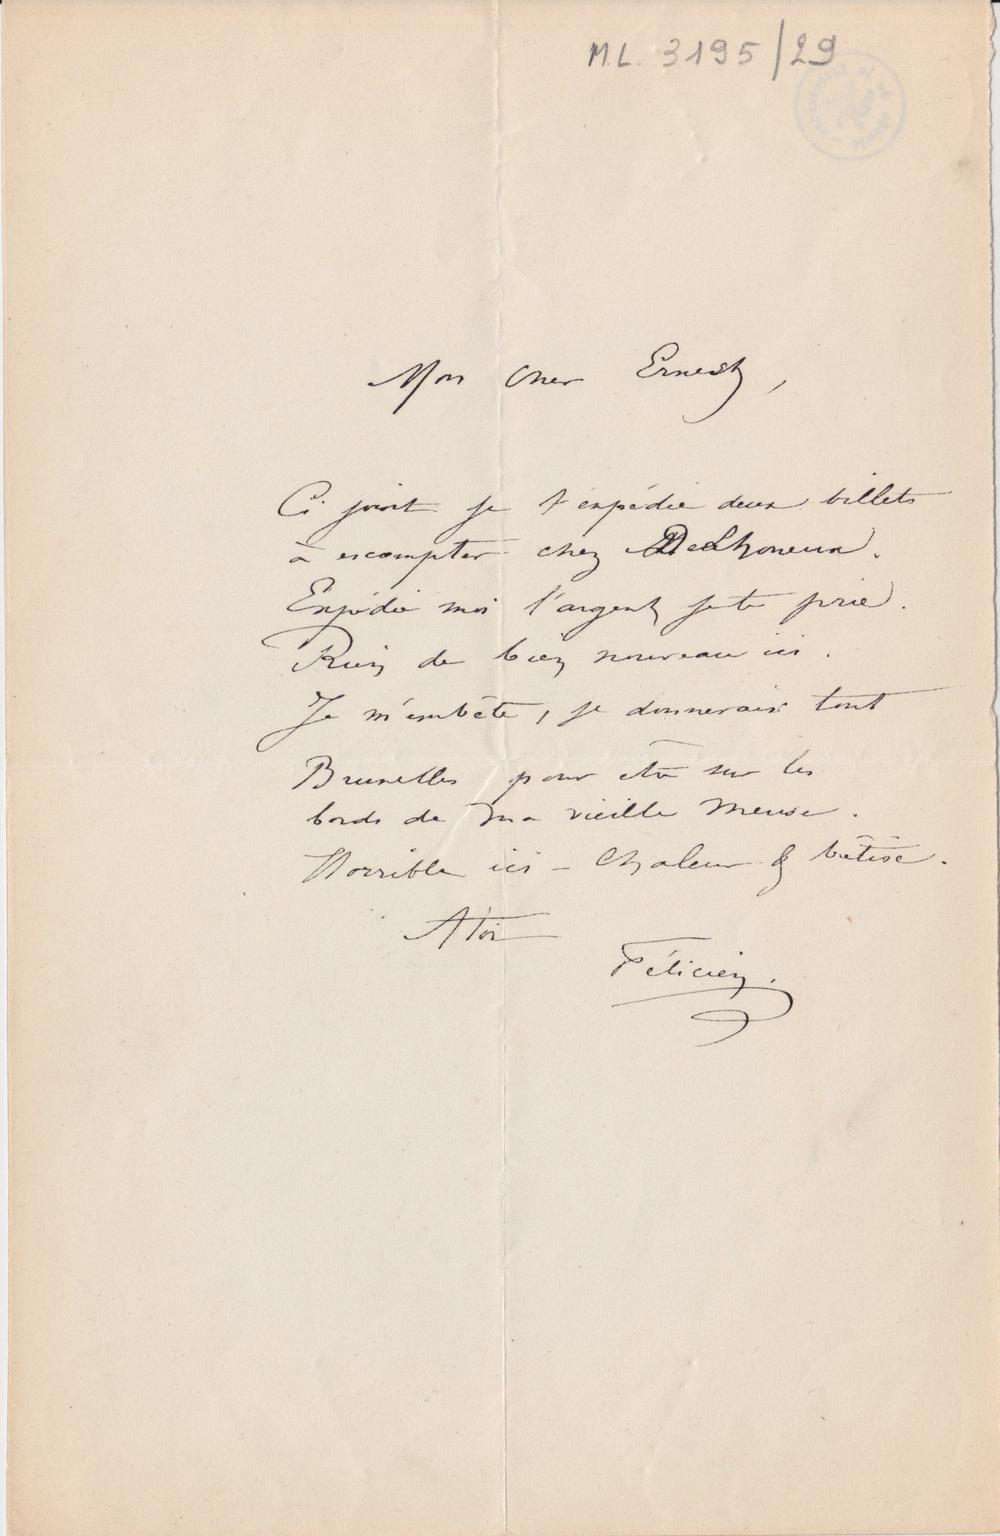 M.L. 3195/29
Mon cher Ernest,
Ci joint je t'expédie deux billets
à escompter chez DeLhoneux.
Expédie moi l'argent je te prie.
Rien de bien nouveau ici.
Je m'embête, je donnerais tout
Bruxelles pour être sur les
bords de ma vieille Meuse.
Horrible ici – Chaleur & bêtise.
A toi
Félicien.